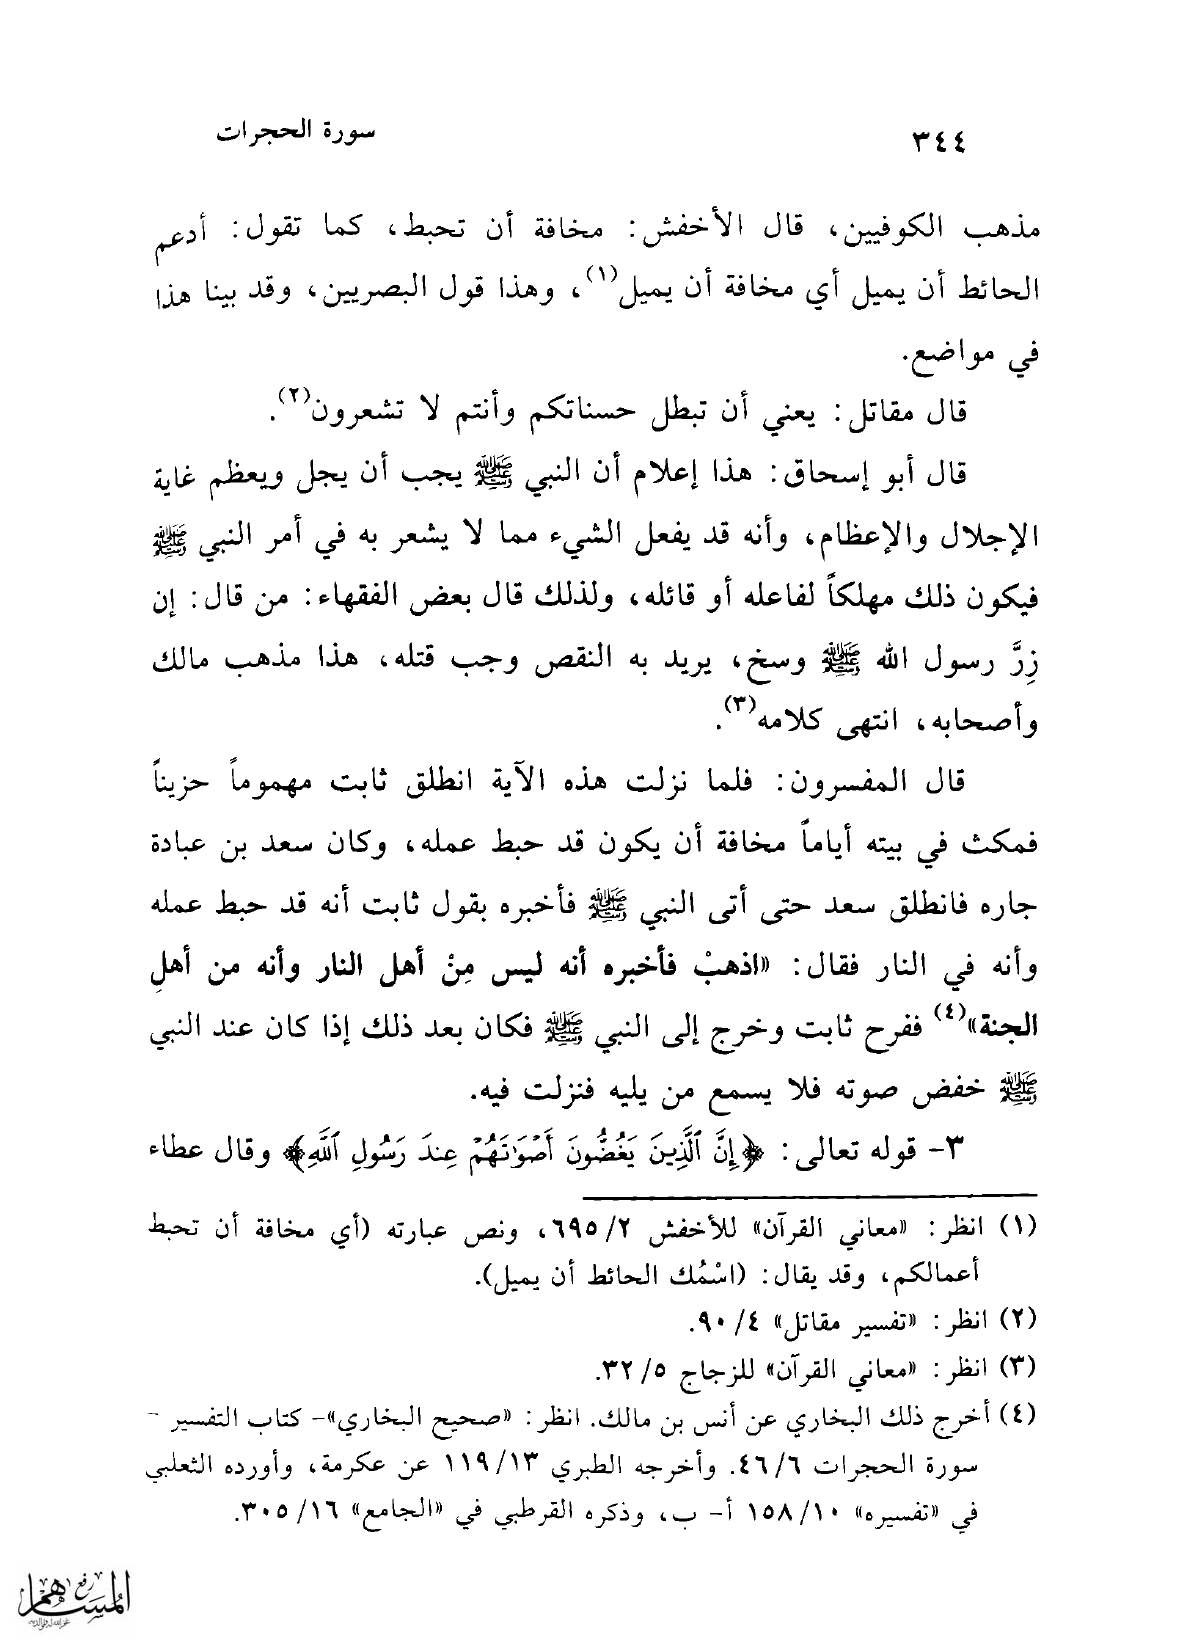 ٣٤٤
سورة الحجرات
مذهب الكوفيين، قال الأخفش: مخافة أن تحبط، كما تقول: أدعم
الحائط أن يميل أي مخافة أن يميل(١)، وهذا قول البصريين، وقد بينا هذا
في مواضع.
قال مقاتل: يعني أن تبطل حسناتكم وأنتم لا تشعرون(٢).
قال أبو إسحاق: هذا إعلام أن النبي ﷺ يجب أن يجل ويعظم غاية
الإجلال والإعظام، وأنه قد يفعل الشيء مما لا يشعر به في أمر النبي ﷺ
فيكون ذلك مهلكاً لفاعله أو قائله، ولذلك قال بعض الفقهاء: من قال: إن
زِرَّ رسول الله ﷺ وسخ، يريد به النقص وجب قتله، هذا مذهب مالك
وأصحابه، انتهى كلامه(٣).
قال المفسرون: فلما نزلت هذه الآية انطلق ثابت مهموماً حزيناً
فمكث في بيته أياماً مخافة أن يكون قد حبط عمله، وكان سعد بن عبادة
جاره فانطلق سعد حتى أتى النبي ﷺ فأخبره بقول ثابت أنه قد حبط عمله
وأنه في النار فقال: «اذهبْ فأخبره أنه ليس مِنْ أهل النار وأنه من أهلِ
الجنة»(٤) ففرح ثابت وخرج إلى النبي ﷺ فكان بعد ذلك إذا كان عند النبي
ﷺ خفض صوته فلا يسمع من يليه فنزلت فيه.
٣- قوله تعالى: ﴿إِنَّ ٱلَّذِينَ يَغُضُّونَ أَصْوَٰتَهُمْ عِندَ رَسُولِ ٱللَّهِ﴾ وقال عطاء
(١) انظر: «معاني القرآن» للأخفش ٢/ ٦٩٥، ونص عبارته (أي مخافة أن تحبط
أعمالكم، وقد يقال: (اسْمُك الحائط أن يميل).
(٢) انظر: «تفسير مقاتل» ٤/ ٩٠.
(٣) انظر: «معاني القرآن» للزجاج ٥/ ٣٢.
(٤) أخرج ذلك البخاري عن أنس بن مالك. انظر: «صحيح البخاري»- كتاب التفسير -
سورة الحجرات ٦/ ٤٦. وأخرجه الطبري ١٣/ ١١٩ عن عكرمة، وأورده الثعلبي
في «تفسيره» ١٠/ ١٥٨ أ- ب، وذكره القرطبي في «الجامع» ١٦/ ٣٠٥.
رفع
المساهم